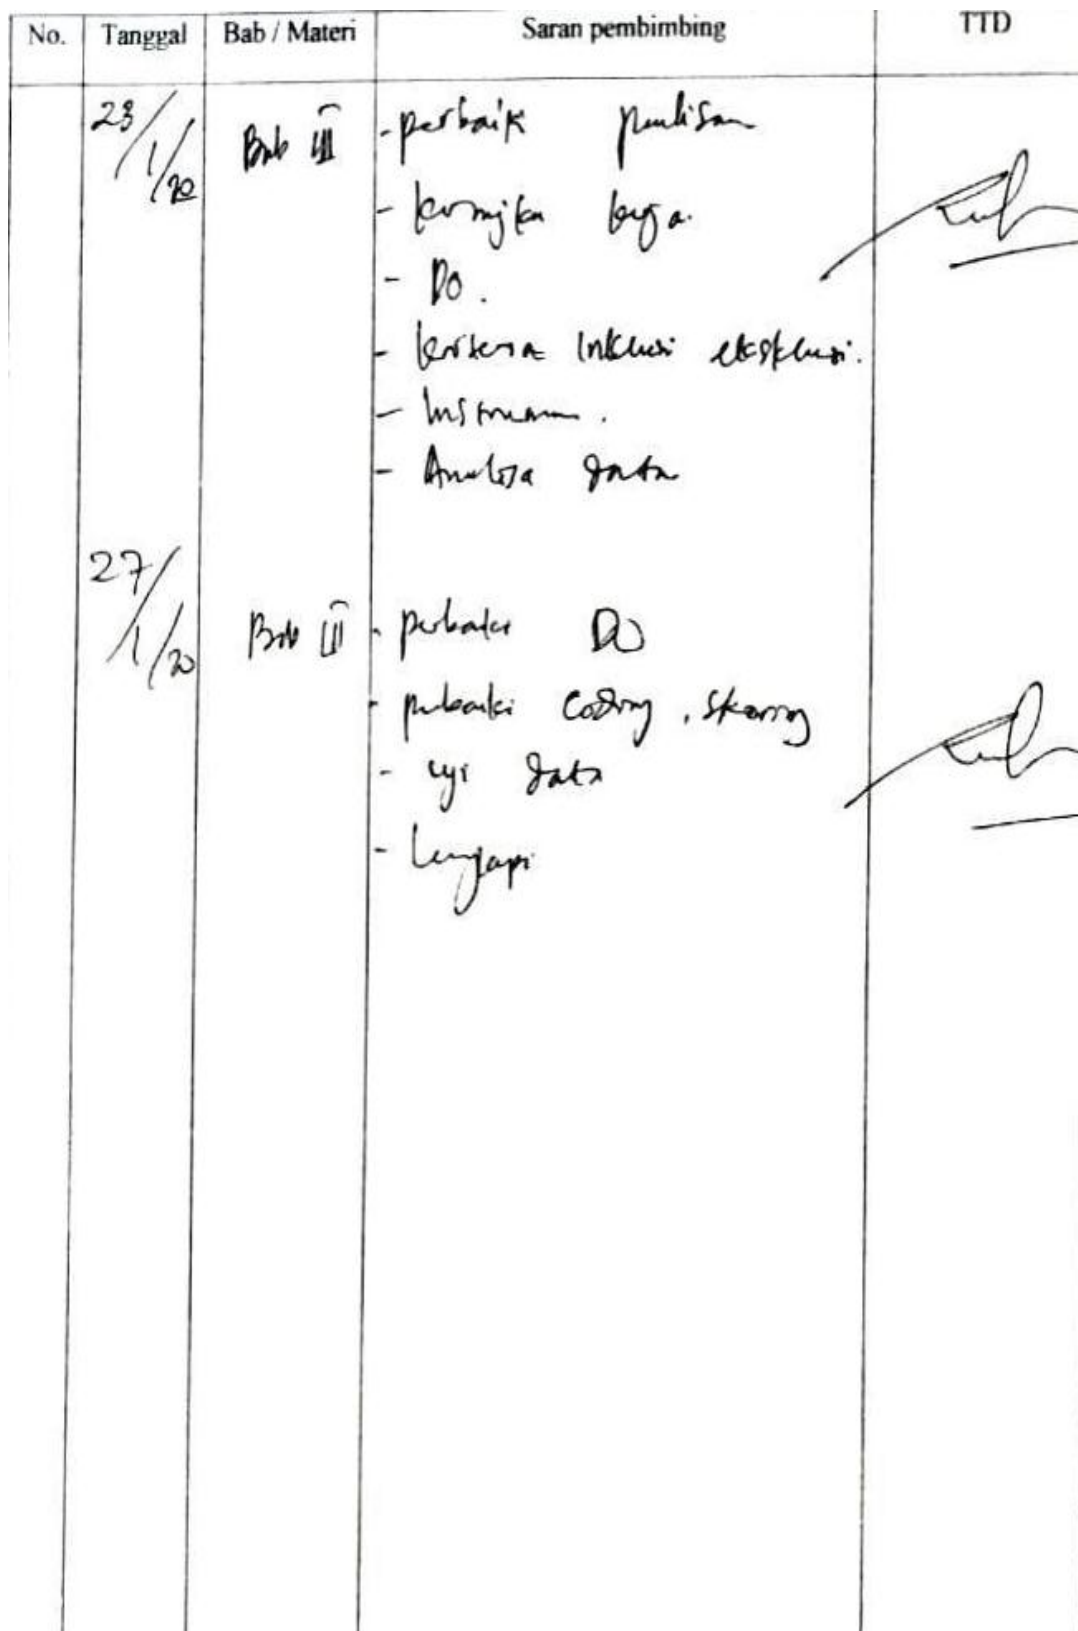 No. Tanggal Bab / Materi Saran pembimbing TTD
23/1/20 Bab III - perbaik penulisan
- kerangka kerja.
- DO.
- kriteria inklusi eksklusi.
- Instrumen.
- Analisa data
27/1/20 Bab III - perbaiki DO
- perbaiki coding, skoring
- uji data
- Lengkapi